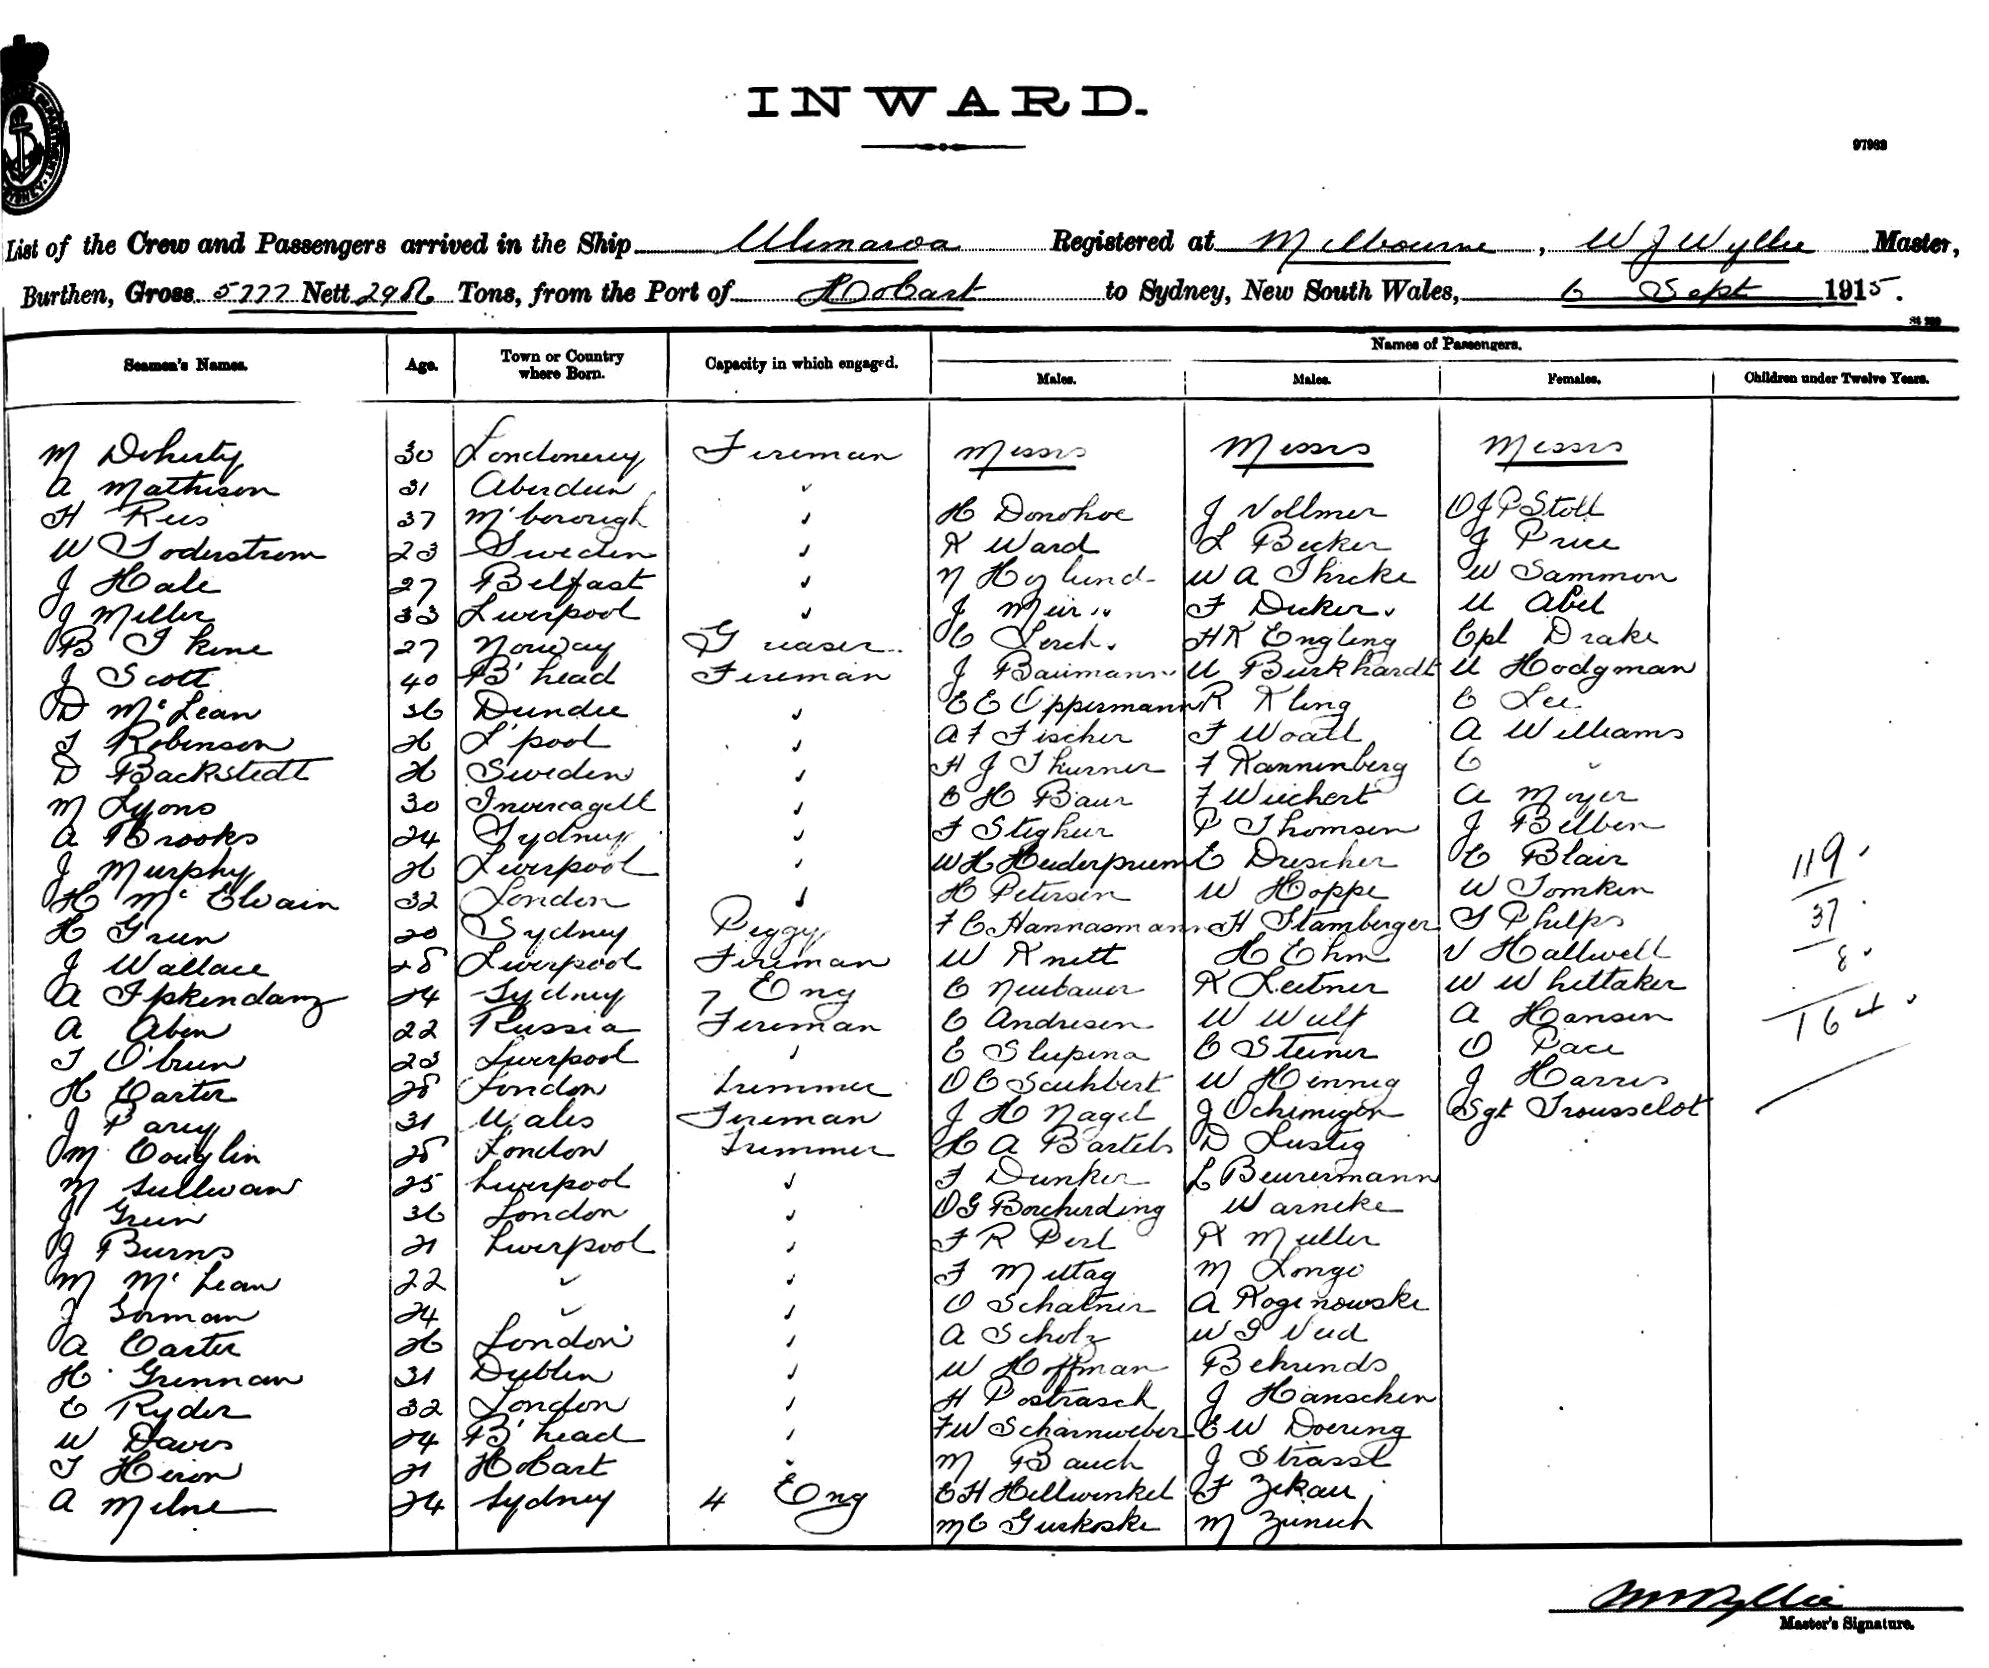 INWARD.
97963
List of the Crew and Passengers arrived in the Ship Ulimaroa Registered at Melbourne, W J Wyllie Master,
Burthen, Gross 5777 Nett Tons, from the Port of Hobart to Sydney, New South Wales, 6 Sept 1915.
Names of Passengers.
Seamen's Names. Age. Town or Country where Born. Capacity in which engaged. Males. Males. Females. Children under Twelve Years.
M Doherty 30 Londonerry Fireman Messrs Messrs Messrs
A Mathison 31 Aberdeen "
H Rees 37 M'borough " H Donohoe J Vollmer O J P Stott
W Soderstrom 23 Sweden " K Ward L Becker J Price
J Hale 27 Belfast " N Hoglund W A Thicke W Sammon
J Miller 33 Liverpool " J Meir F Dicker U Abel
B I kene 27 Norway Greaser C Lerch H K Engling Cpl Drake
J Scott 40 B'head Fireman J Baumann U Burkhardt U Hodgman
D McLean 36 Dundee " E E Oppermann R Kling C Lee
T Robinson 26 L'pool " A F Fischer F Woatt A Williams
D Backstedt 26 Sweden " H J Thurner F Kannenberg C "
M Lyons 30 Invercagell " C H Baur F Wiechert A Moyer
A Brooks 24 Sydney " F Steghur P Thomsen J Belben
J Murphy 26 Liverpool " W H Heiderpriem E Drescher C Blair
H McElvain 32 London " H Petersen W Hoppe W Tomkin
H Green 20 Sydney Peggy F C Hannasmann H Stamberger S Phelps
J Wallace 28 Liverpool Fireman W Knett H Ehm V Hallwell
A Ipkendanz 24 Sydney 7 Eng C Neubauer K Leitner W Whittaker
A Aben 22 Russia Fireman C Andresen W Wulf A Hansen
T O'brien 23 Liverpool " E Slupina C Steiner O Pace
H Carter 28 London Trimmer O C Scuhbert W Hennig J Harris
J Parry 31 Wales Fireman J H Nagel J Ochimigen Sgt Trousselot
M Couglin 28 London Trimmer H A Bartels D Lustig
M Sullivan 25 Liverpool " F Dunker L Beurermann
J Green 36 London " O G Borcherding Warneke
J Burns 21 Liverpool " F R Perl K Muller
M McLean 22 " " F Mittag M Longo
J Gorman 24 " " O Schatner A Roginowski
A Carter 26 London " A Scholz W G Veid
H Grennan 31 Dublin " W Hoffman Behrends
C Ryder 32 London " H Postrasch J Hanschen
W Davis 24 B'head " F W Scharnweber E W Doering
T Heron 21 Hobart " M Bauch J Strassl
A Milne 24 Sydney 4 Eng E H Hellwinkel F Zekau
M C Gurkoske M Zunech
119
37
8
164
Master's Signature.